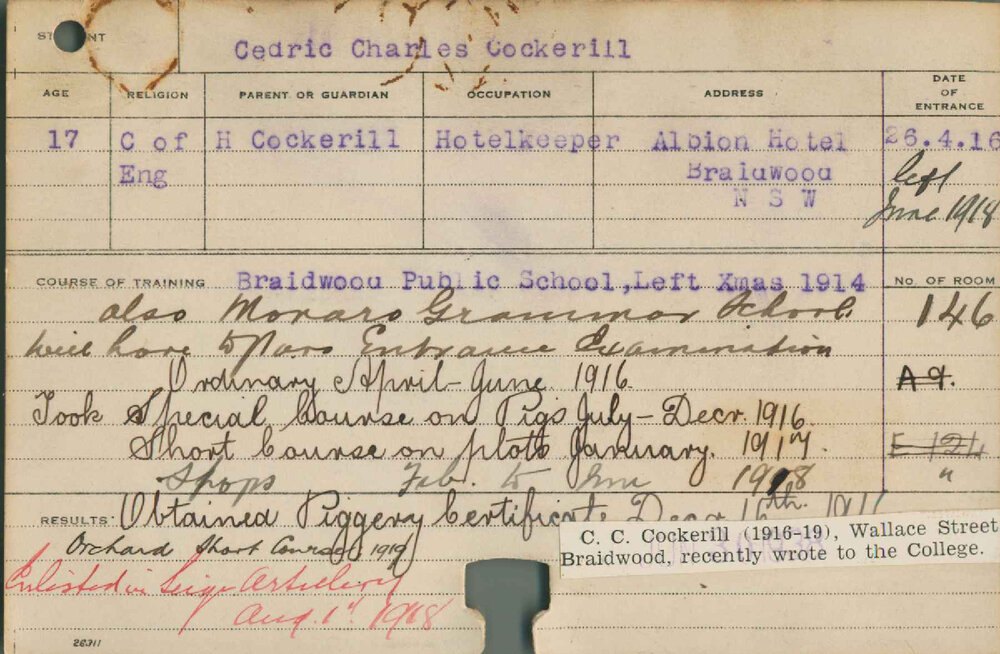 Cedric Charles Cockerill
AGE RELIGION PARENT OR GUARDIAN OCCUPATION ADDRESS DATE OF ENTRANCE
17 C of Eng H Cockerill Hotelkeeper Albion Hotel Braidwood N S W 26.4.16
left June 1918
COURSE OF TRAINING Braidwood Public School, Left Xmas 1914 No. OF ROOM
also Monaro Grammar School. 146
Will have to pass Entrance Examination
Ordinary April - June 1916. A 9.
Took Special Course on Pigs July - Decr. 1916.
Short Course on plots January. 1917 E 124
Shops Feb. to 1918 "
RESULTS: Obtained Piggery Certificate Decr 1th.
Orchard Short Course 1919
C. C. Cockerill (1916-19), Wallace Street
Braidwood, recently wrote to the College.
Enlisted in Seige Artillery
Aug. 1st 1918
28311